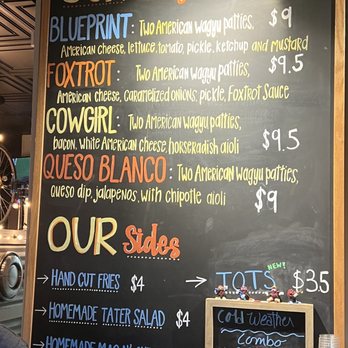 BLUEPRINT: Two American wagyu patties, $9
American cheese, lettuce, tomato, pickle, ketchup and mustard
FOXTROT: Two American wagyu patties, $9.5
American cheese, caramelized onions, pickle, Foxtrot Sauce
COWGIRL: Two American wagyu patties,
bacon, white American cheese, horseradish aioli $9.5
QUESO BLANCO: Two American wagyu patties,
queso dip, jalapenos, with chipotle aioli $9
OUR Sides
NEW!
→ HAND CUT FRIES $4 → TOTS $3.5
→ HOMEMADE TATER SALAD $4
Cold Weather
Combo
→ HOMEMADE